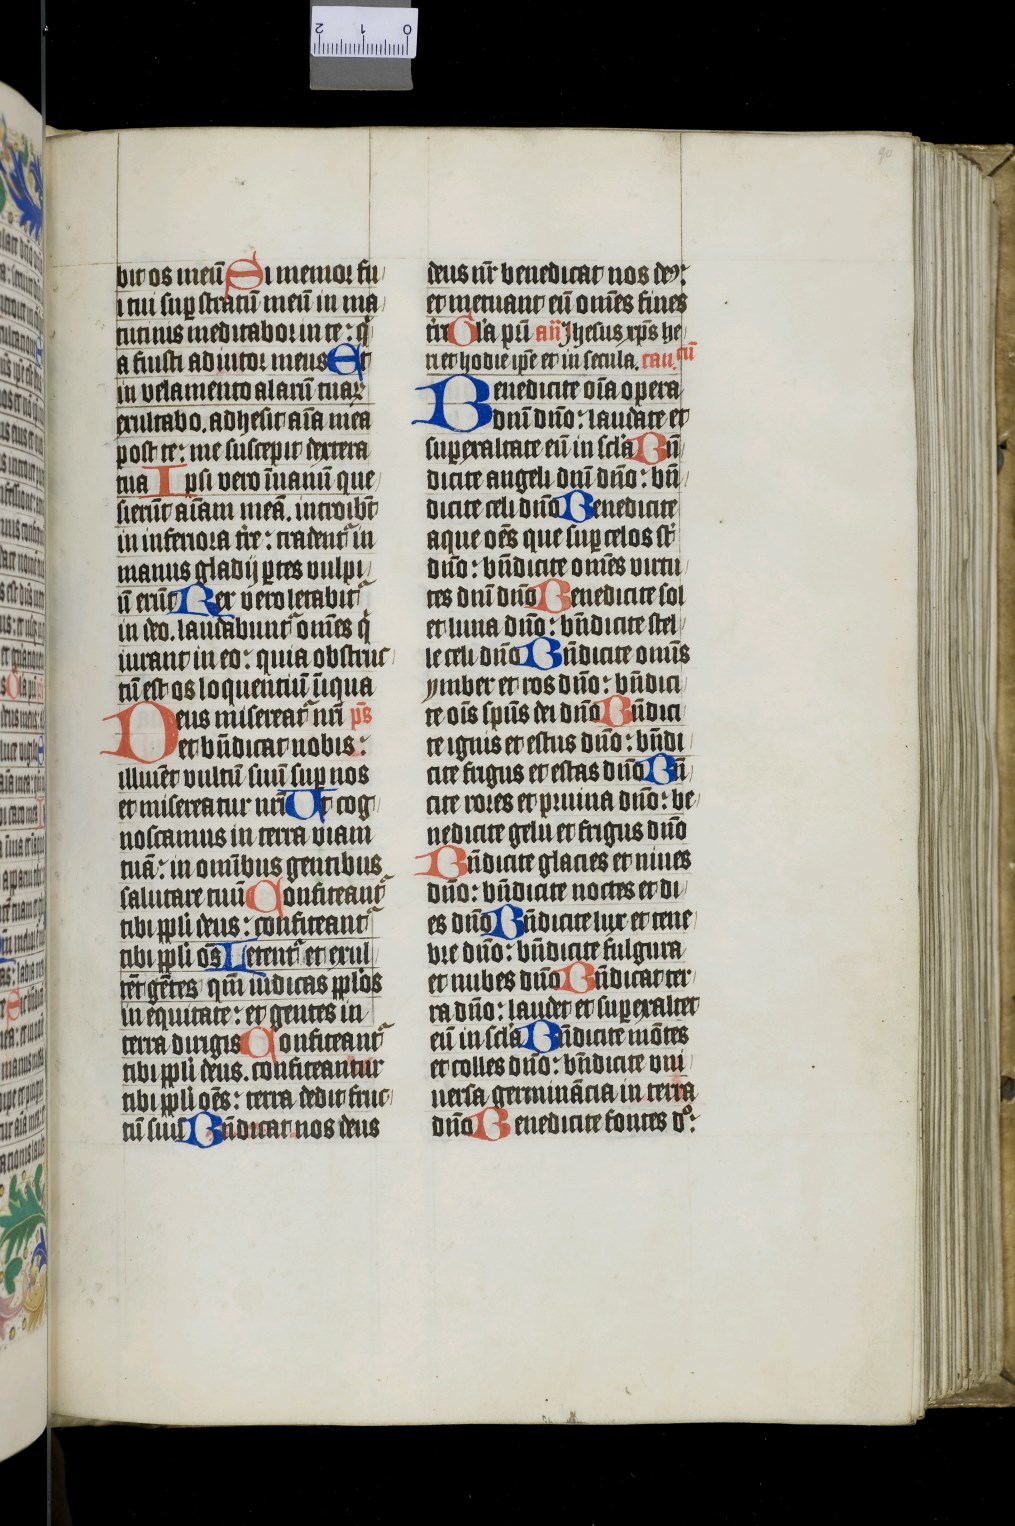 90
bit os meū Si memor fu
i tui sup stratū meū in ma
tutinis meditabor in te : q̓
a fuisti adiutor meus Et
in velamento alarū tuaꝝ
exultabo . adhesit aīa mea
post te : me suscepit dextera
tua Ipsi vero īuanū que
sierūt aīam meā . introibt̄
in inferiora tr̄e : tradent᷑ in
manus gladij ptes vulpi
ū erūt Rex vero letabit᷑
in deo . laudabunt᷑ omēs q̓
iurant in eo : quia obstruc
tū est os loquentiū īiqua
Deus misereat᷑ nr̄i ps̄
et bn̄dicat nobis :
illuiet vultū suū sup nos
et misereatur nr̄i Ut cog
noscamus in terra viam
tuā : in omībus gentibus
salutare tuū Confiteant᷑
tibi ppli deus : confiteant᷑
tibi ppli oēs Letent᷑ et exul
tēt gētes qm̄ iudicas pplos
in equitate : et gentes in
terra dirigis Confiteant᷑
tibi ppli deus . confiteantur
tibi ppli oēs : terra dedit fruc
tū suū Bn̄dicat nos deus
deus nr̄ benedicat nos de9 :
et metuant eū omēs fines
tr̄e Gl̄a pr̄i an̄ Jhesus xp̄s he
ri et hodie ipē et in secula . cant cū
Benedicite oīa opera
dnī dn̄o : laudate et
superaltate eū in sc̄la Bn̄
dicite angeli dnī dn̄o : bn̄
dicite celi dn̄o Benedicite
aque oēs que sup celos st̄
dn̄o : bn̄dicite omēs virtu
tes dnī dn̄o Benedicite sol
et luna dn̄o : bn̄dicite stel
le celi dn̄o Bn̄dicite omīs
ymber et ros dn̄o : bn̄dici
te oīs spūs dei dn̄o Bn̄dici
te ignis et estus dn̄o : bn̄di
cite frigus et estas dn̄o Bn̄
cite rores et pruina dn̄o : be
nedicite gelu et frigus dn̄o
Bn̄dicite glacies et niues
dn̄o : bn̄dicite noctes et di
es dn̄o Bn̄dicite lux et tene
bre dn̄o : bn̄dicite fulgura
et nubes dn̄o Bn̄dicat ter
ra dn̄o : laudet et superaltet
eū in sc̄la Bn̄dicite mōtes
et colles dn̄o : bn̄dicite vni
uersa germināṫia in terra
dn̄o Benedicite fontes dº :
0 1 2